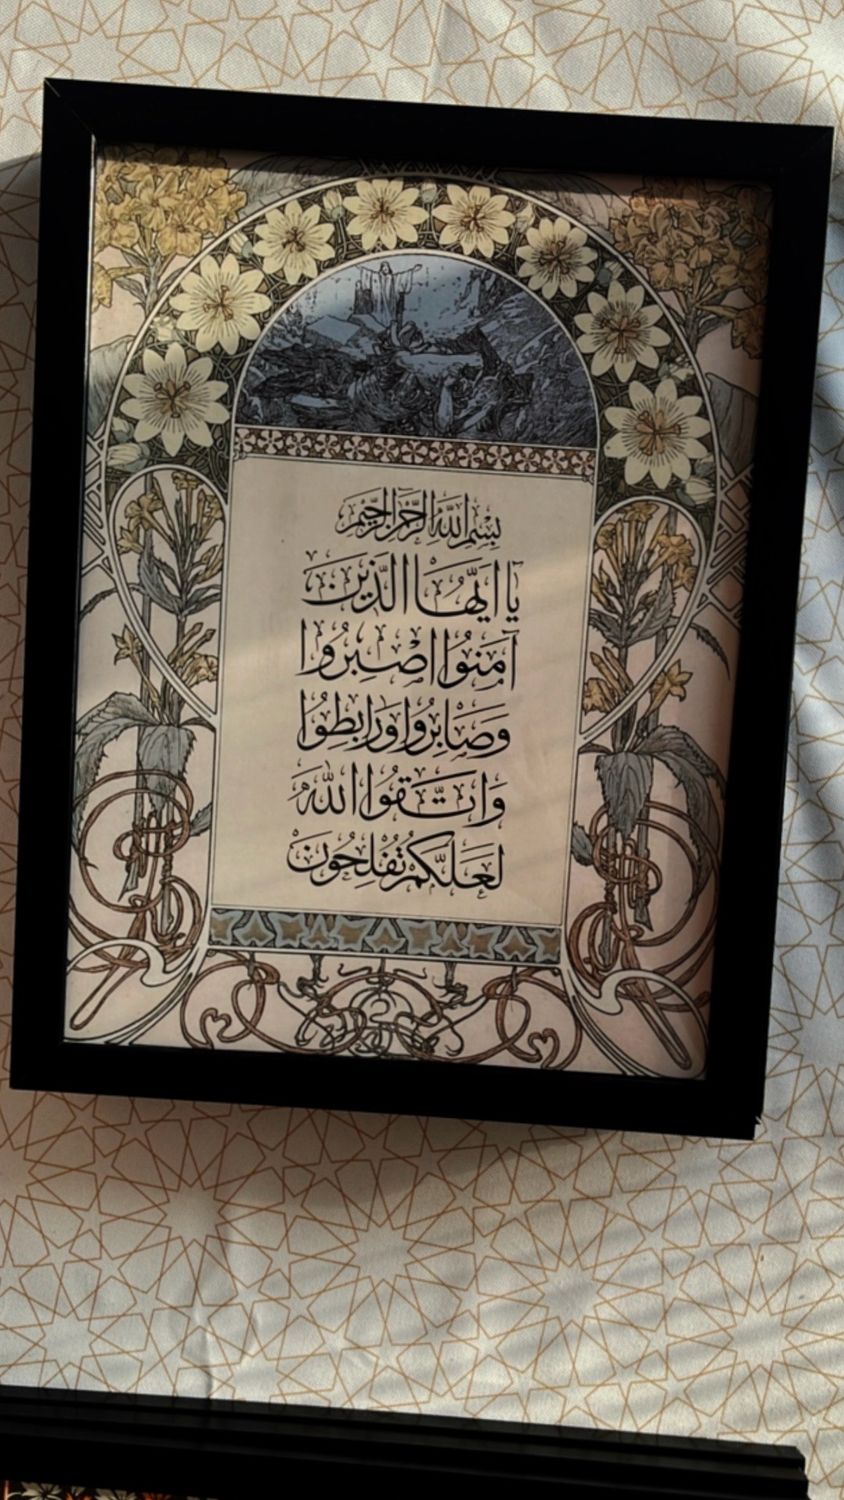 بِسْمِ اللَّهِ الرَّحْمَنِ الرَّحِيمِ
يَا أَيُّهَا الَّذِينَ
آمَنُوا اصْبِرُوا
وَصَابِرُوا وَرَابِطُوا
وَاتَّقُوا اللَّهَ
لَعَلَّكُمْ تُفْلِحُونَ